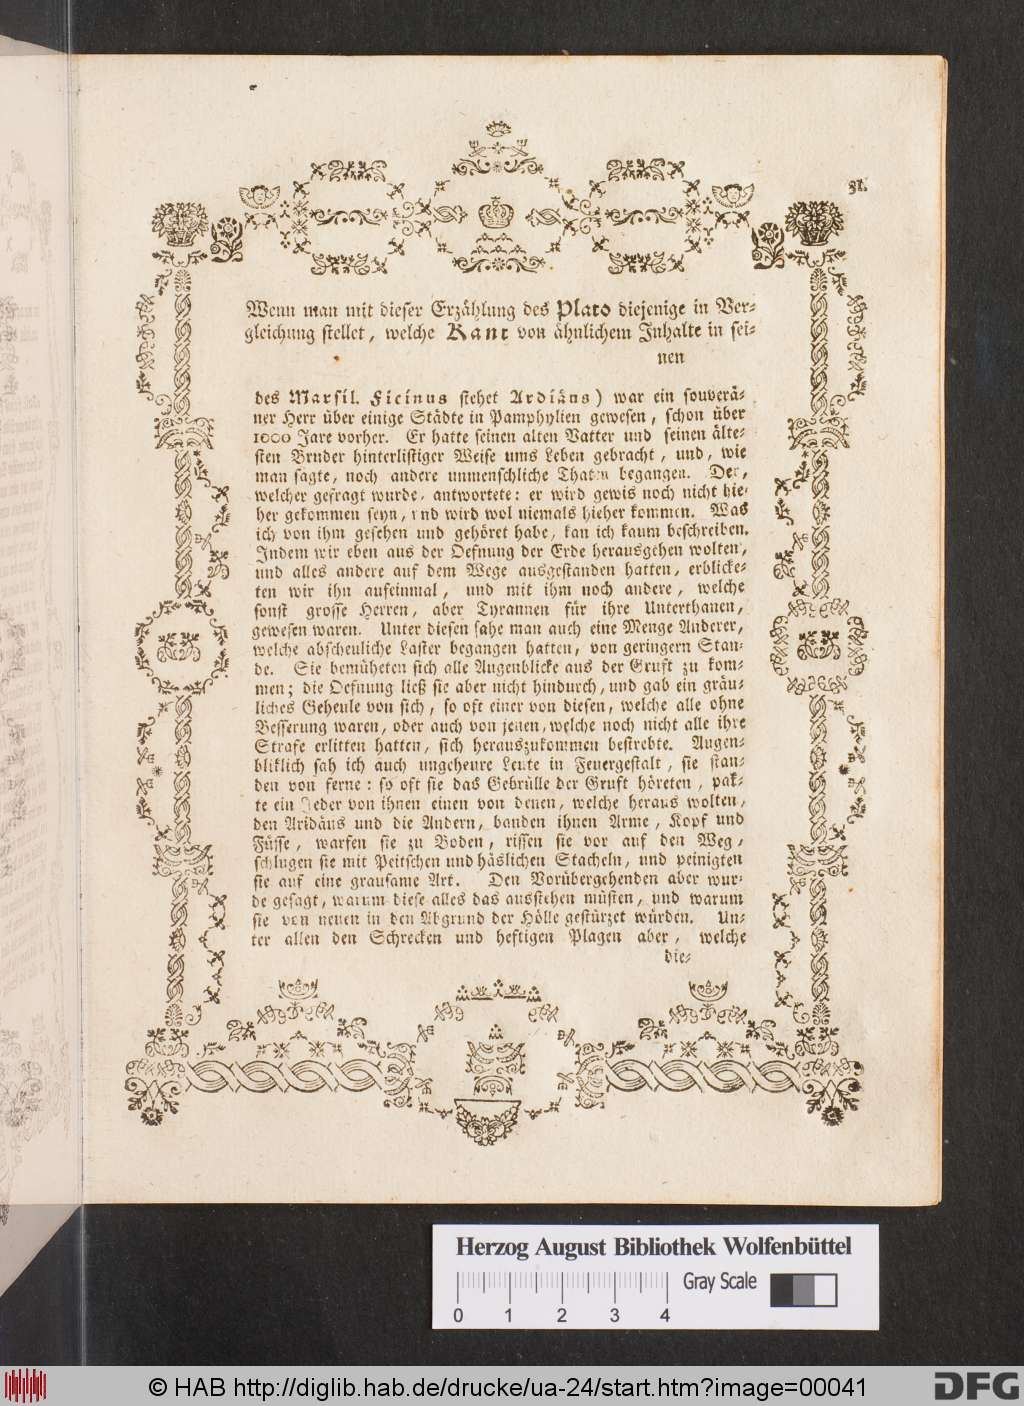 31.
Wenn man mit dieser Erzählung des Plato diejenige in Ver-
gleichung stellet, welche Kant von ähnlichem Inhalte in sei-
nen
des Marsil. Ficinus stehet Ardiäus) war ein souverä-
ner Herr über einige Städte in Pamphylien gewesen, schon über
1000 Jare vorher. Er hatte seinen alten Vatter und seinen älte-
sten Bruder hinterlistiger Weise ums Leben gebracht, und, wie
man sagte, noch andere unmenschliche Thaten begangen. Der,
welcher gefragt wurde, antwortete: er wird gewis noch nicht hie-
her gekommen seyn, und wird wol niemals hieher kommen. Was
ich von ihm gesehen und gehöret habe, kan ich kaum beschreiben.
Indem wir eben aus der Oefnung der Erde herausgehen wolten,
und alles andere auf dem Wege ausgestanden hatten, erblicke-
ten wir ihn aufeinmal, und mit ihm noch andere, welche
sonst grosse Herren, aber Tyrannen für ihre Unterthanen,
gewesen waren. Unter diesen sahe man auch eine Menge Anderer,
welche abscheuliche Laster begangen hatten, von geringern Stan-
de. Sie bemüheten sich alle Augenblicke aus der Gruft zu kom-
men; die Oefnung ließ sie aber nicht hindurch, und gab ein gräu-
liches Geheule von sich, so oft einer von diesen, welche alle ohne
Besserung waren, oder auch von jenen, welche noch nicht alle ihre
Strafe erlitten hatten, sich herauszukommen bestrebte. Augen-
bliklich sah ich auch ungeheure Leute in Feuergestalt, sie stan-
den von ferne: so oft sie das Gebrülle der Gruft höreten, pak-
te ein Jeder von ihnen einen von denen, welche heraus wolten,
den Aridäus und die Andern, banden ihnen Arme, Kopf und
Füsse, warfen sie zu Boden, rissen sie vor auf den Weg,
schlugen sie mit Peitschen und häslichen Stacheln, und peinigten
sie auf eine grausame Art. Den Vorübergehenden aber wur-
de gesagt, warum diese alles das ausstehen müsten, und warum
sie von neuen in den Abgrund der Hölle gestürzet würden. Un-
ter allen den Schrecken und heftigen Plagen aber, welche
die-
Herzog August Bibliothek Wolfenbüttel
Gray Scale
0 1 2 3 4
© HAB http://diglib.hab.de/drucke/ua-24/start.htm?image=00041
DFG